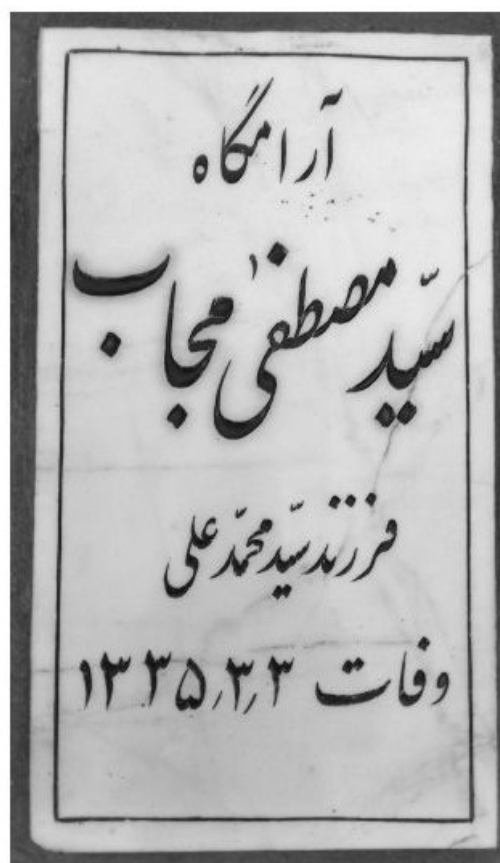 آرامگاه
سیّد مصطفیٰ مجاب
فرزند سیّد محمّد علی
وفات ۱۳۳۵٫۳٫۳